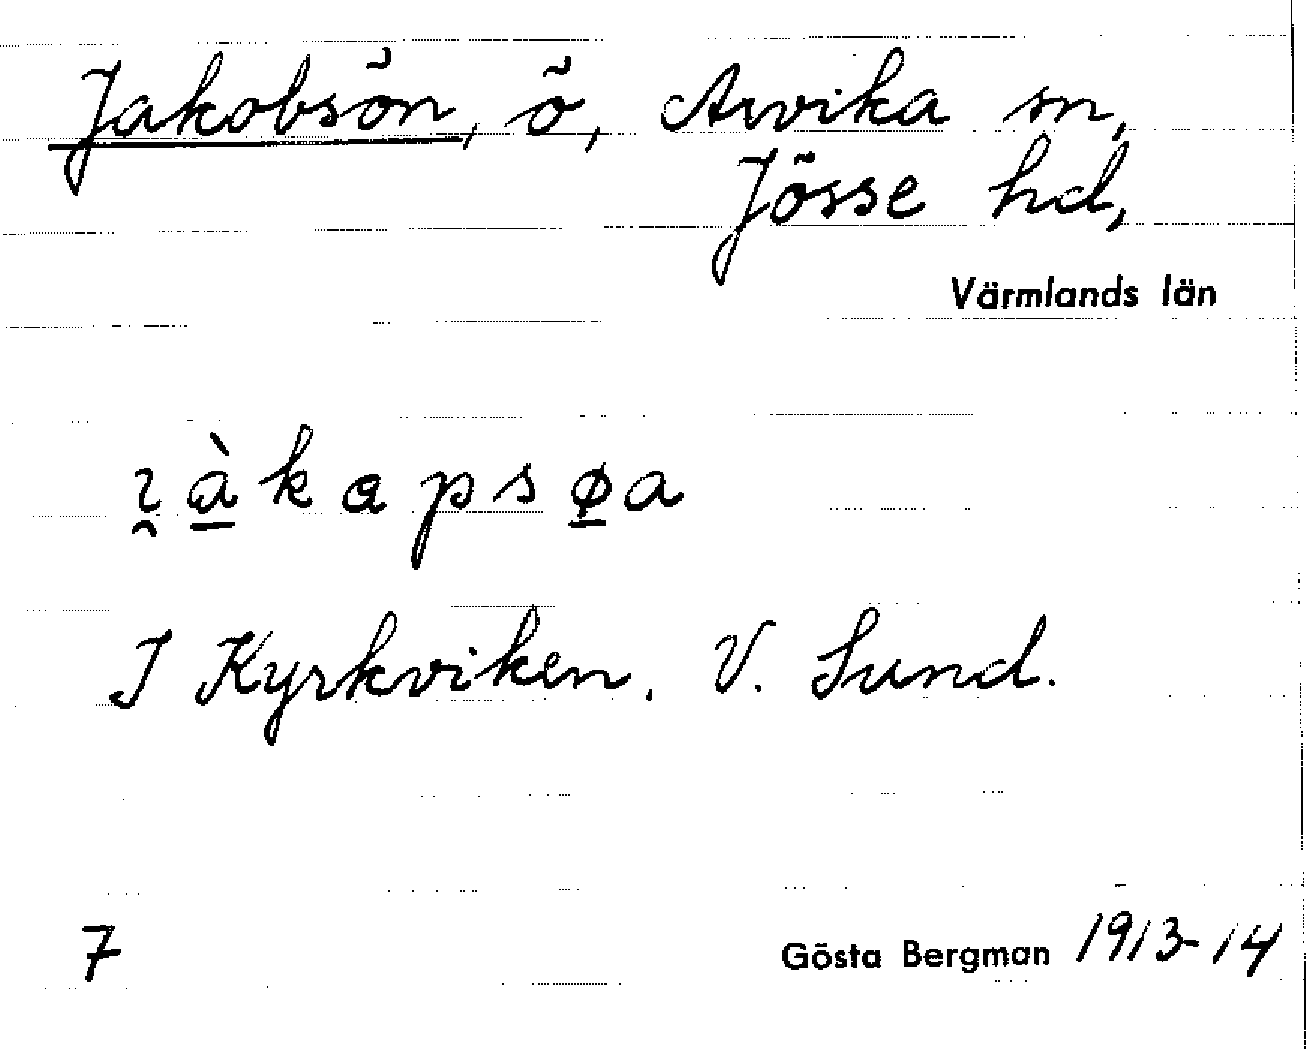 Jakobsön, ö, Arvika sn,
Jösse hd,
Värmlands län
ı̯ à̲ k a p s ø̲ a
I Kyrkviken. V. Sund.
7
Gösta Bergman 1913-14